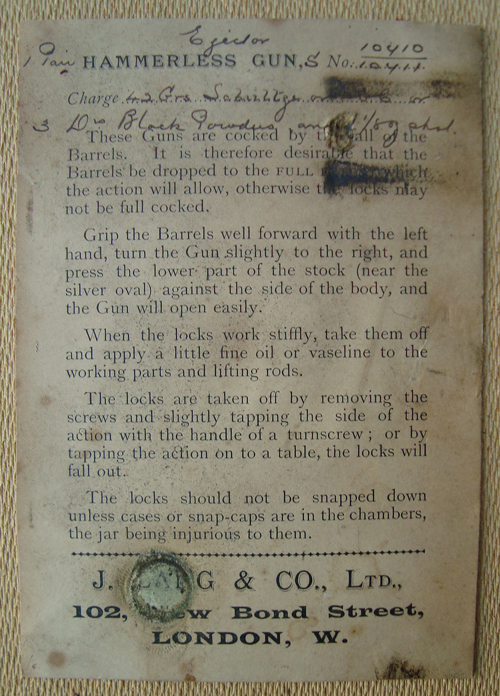 Ejector
1 Pair HAMMERLESS GUN,S No. 10410
10411
Charge 42 Grs Schultze or
3 Drs Black Powder and 1 1/8 oz shot.
These Guns are cocked by the fall of the
Barrels. It is therefore desirable that the
Barrels be dropped to the FULL which
the action will allow, otherwise the locks may
not be full cocked.
Grip the Barrels well forward with the left
hand, turn the Gun slightly to the right, and
press the lower part of the stock (near the
silver oval) against the side of the body, and
the Gun will open easily.
When the locks work stiffly, take them off
and apply a little fine oil or vaseline to the
working parts and lifting rods.
The locks are taken off by removing the
screws and slightly tapping the side of the
action with the handle of a turnscrew ; or by
tapping the action on to a table, the locks will
fall out.
The locks should not be snapped down
unless cases or snap-caps are in the chambers,
the jar being injurious to them.
J. LANG & CO., LTD.,
102, New Bond Street,
LONDON, W.